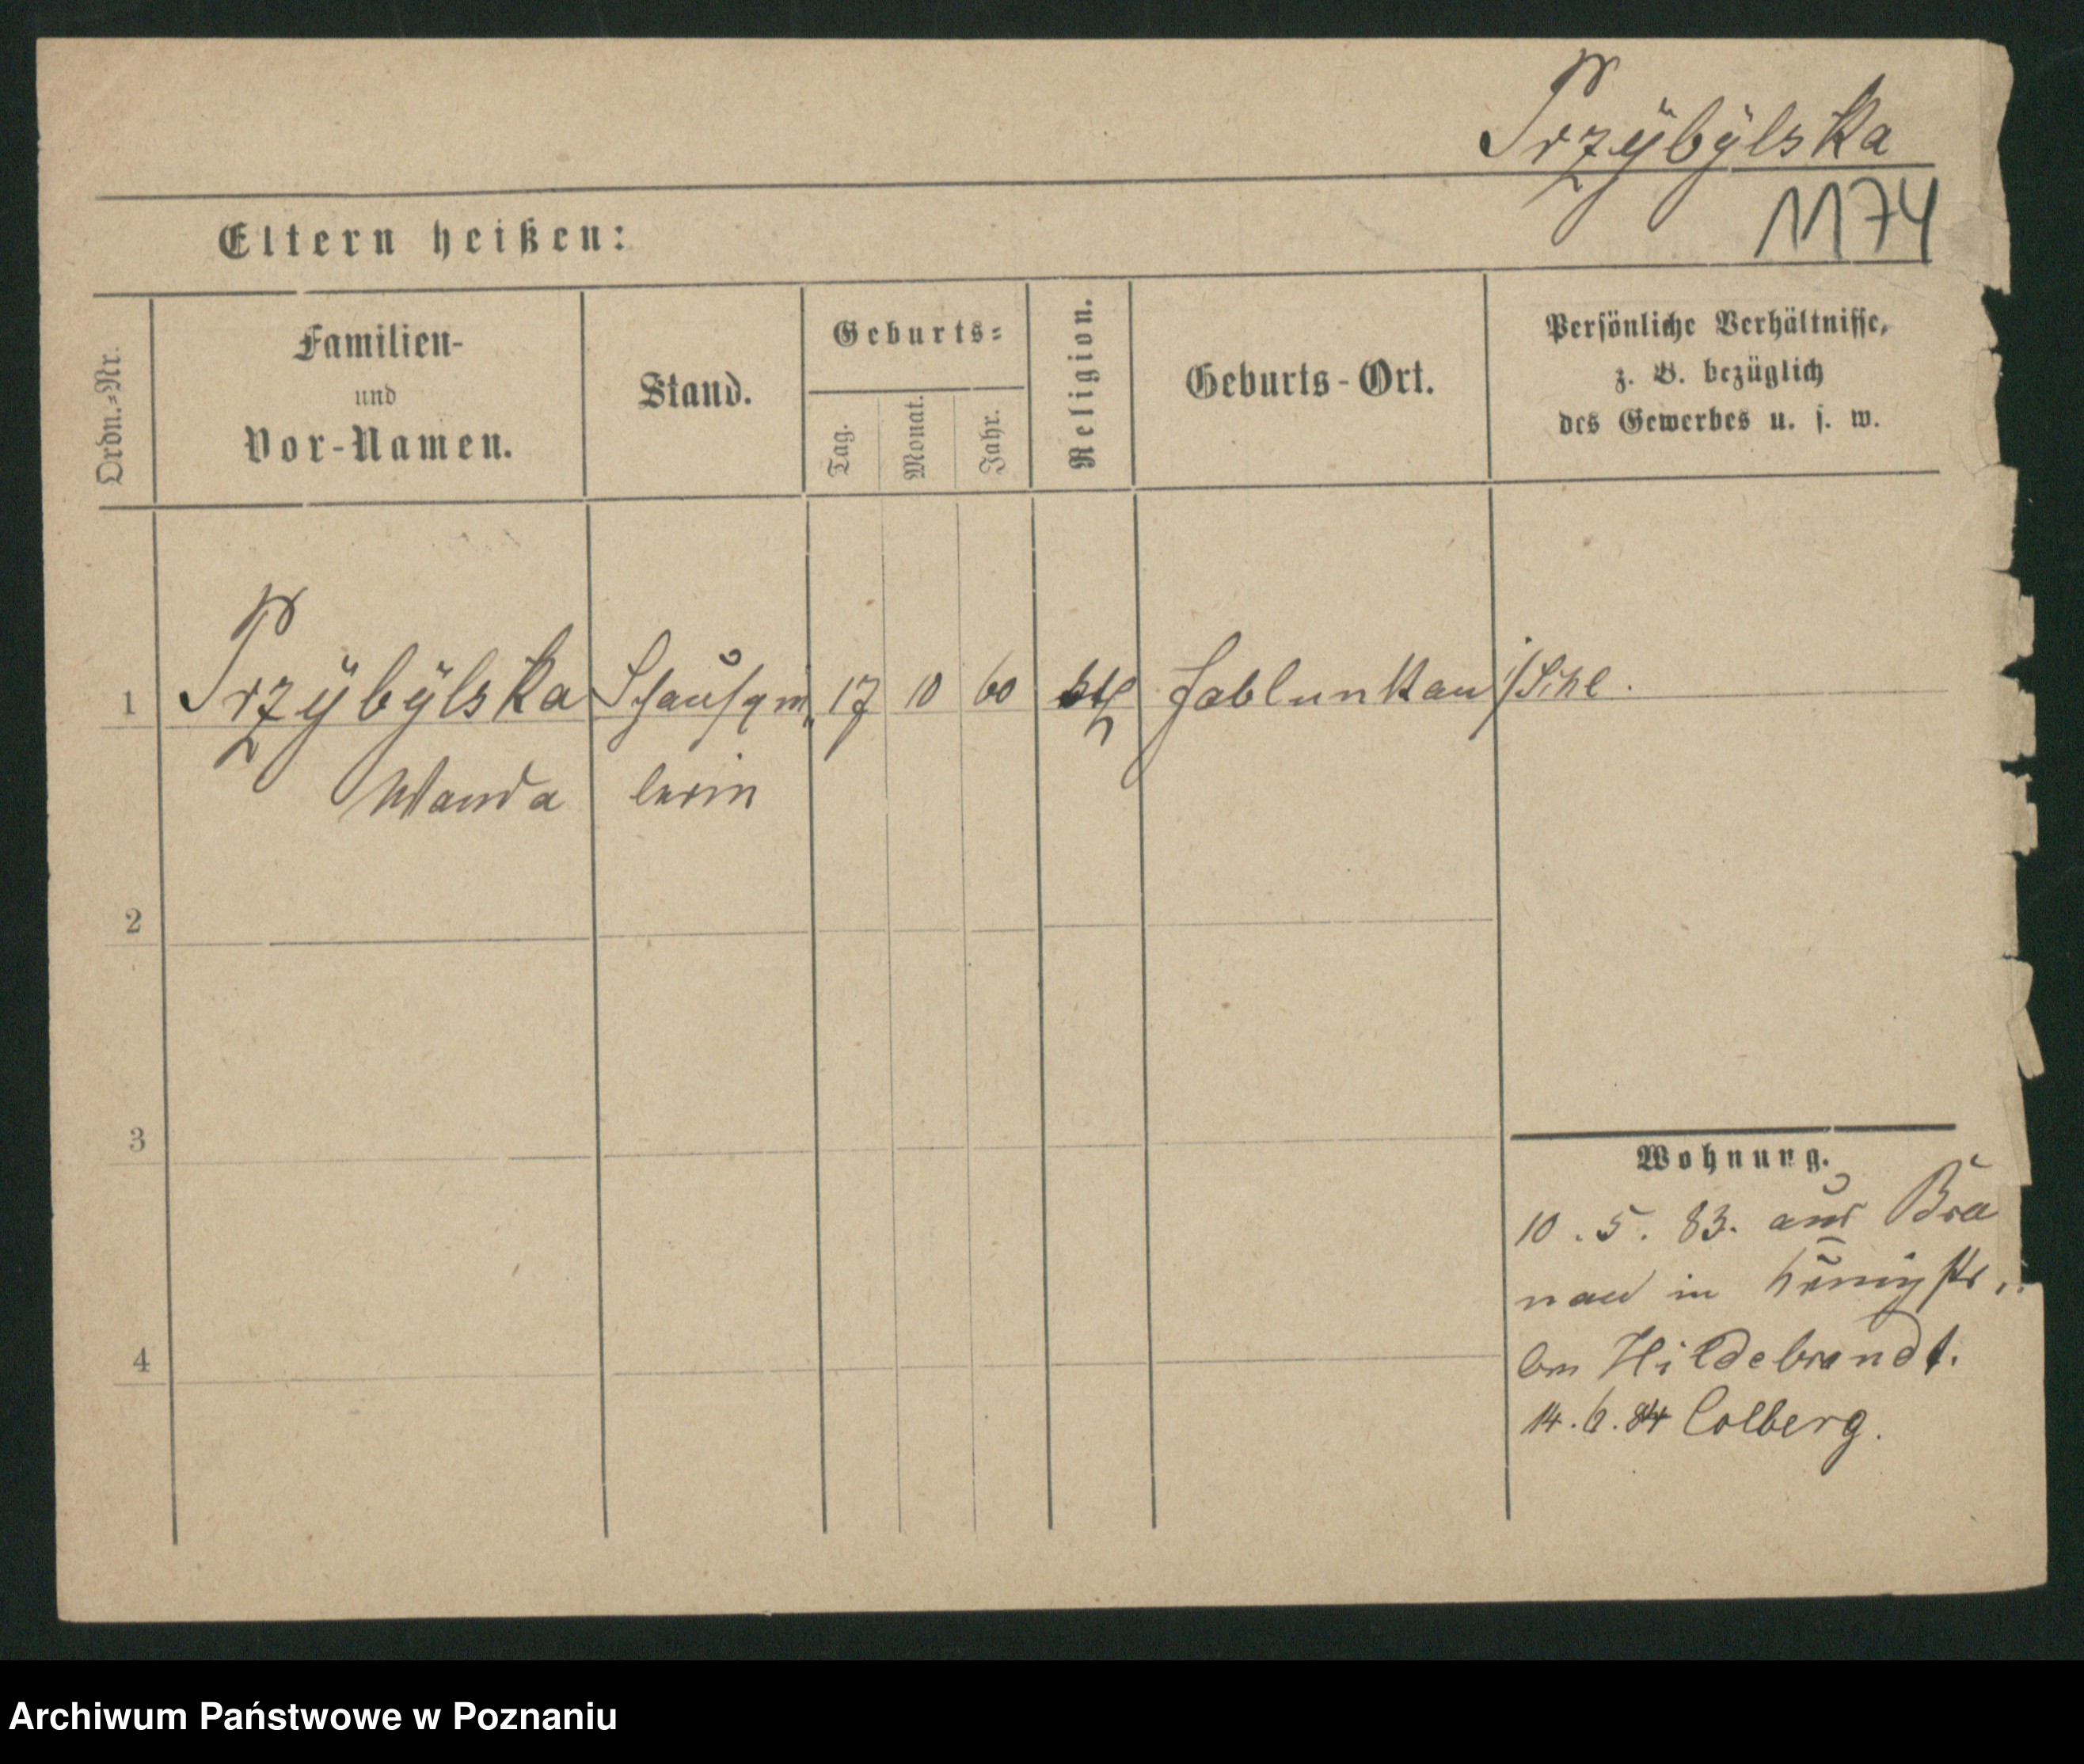 Przÿbÿlska
1174
Eltern heißen:
Ordn.=Nr.
Familien-
und
Vor-Namen.
Stand.
Geburts=
Tag.
Monat.
Jahr.
Religion.
Geburts-Ort.
Persönliche Verhältnisse,
z. B. bezüglich
des Gewerbes u. s. w.
1 Przÿbÿlska Schauspie 17 10 60 kth Jablunkau i/Schl.
Wanda lerin
2
3
4
Wohnung.
10. 5. 83. aus
nau in Königstr.
bn Hildebrandt.
14. 6. 84 Colberg.
Archiwum Państwowe w Poznaniu